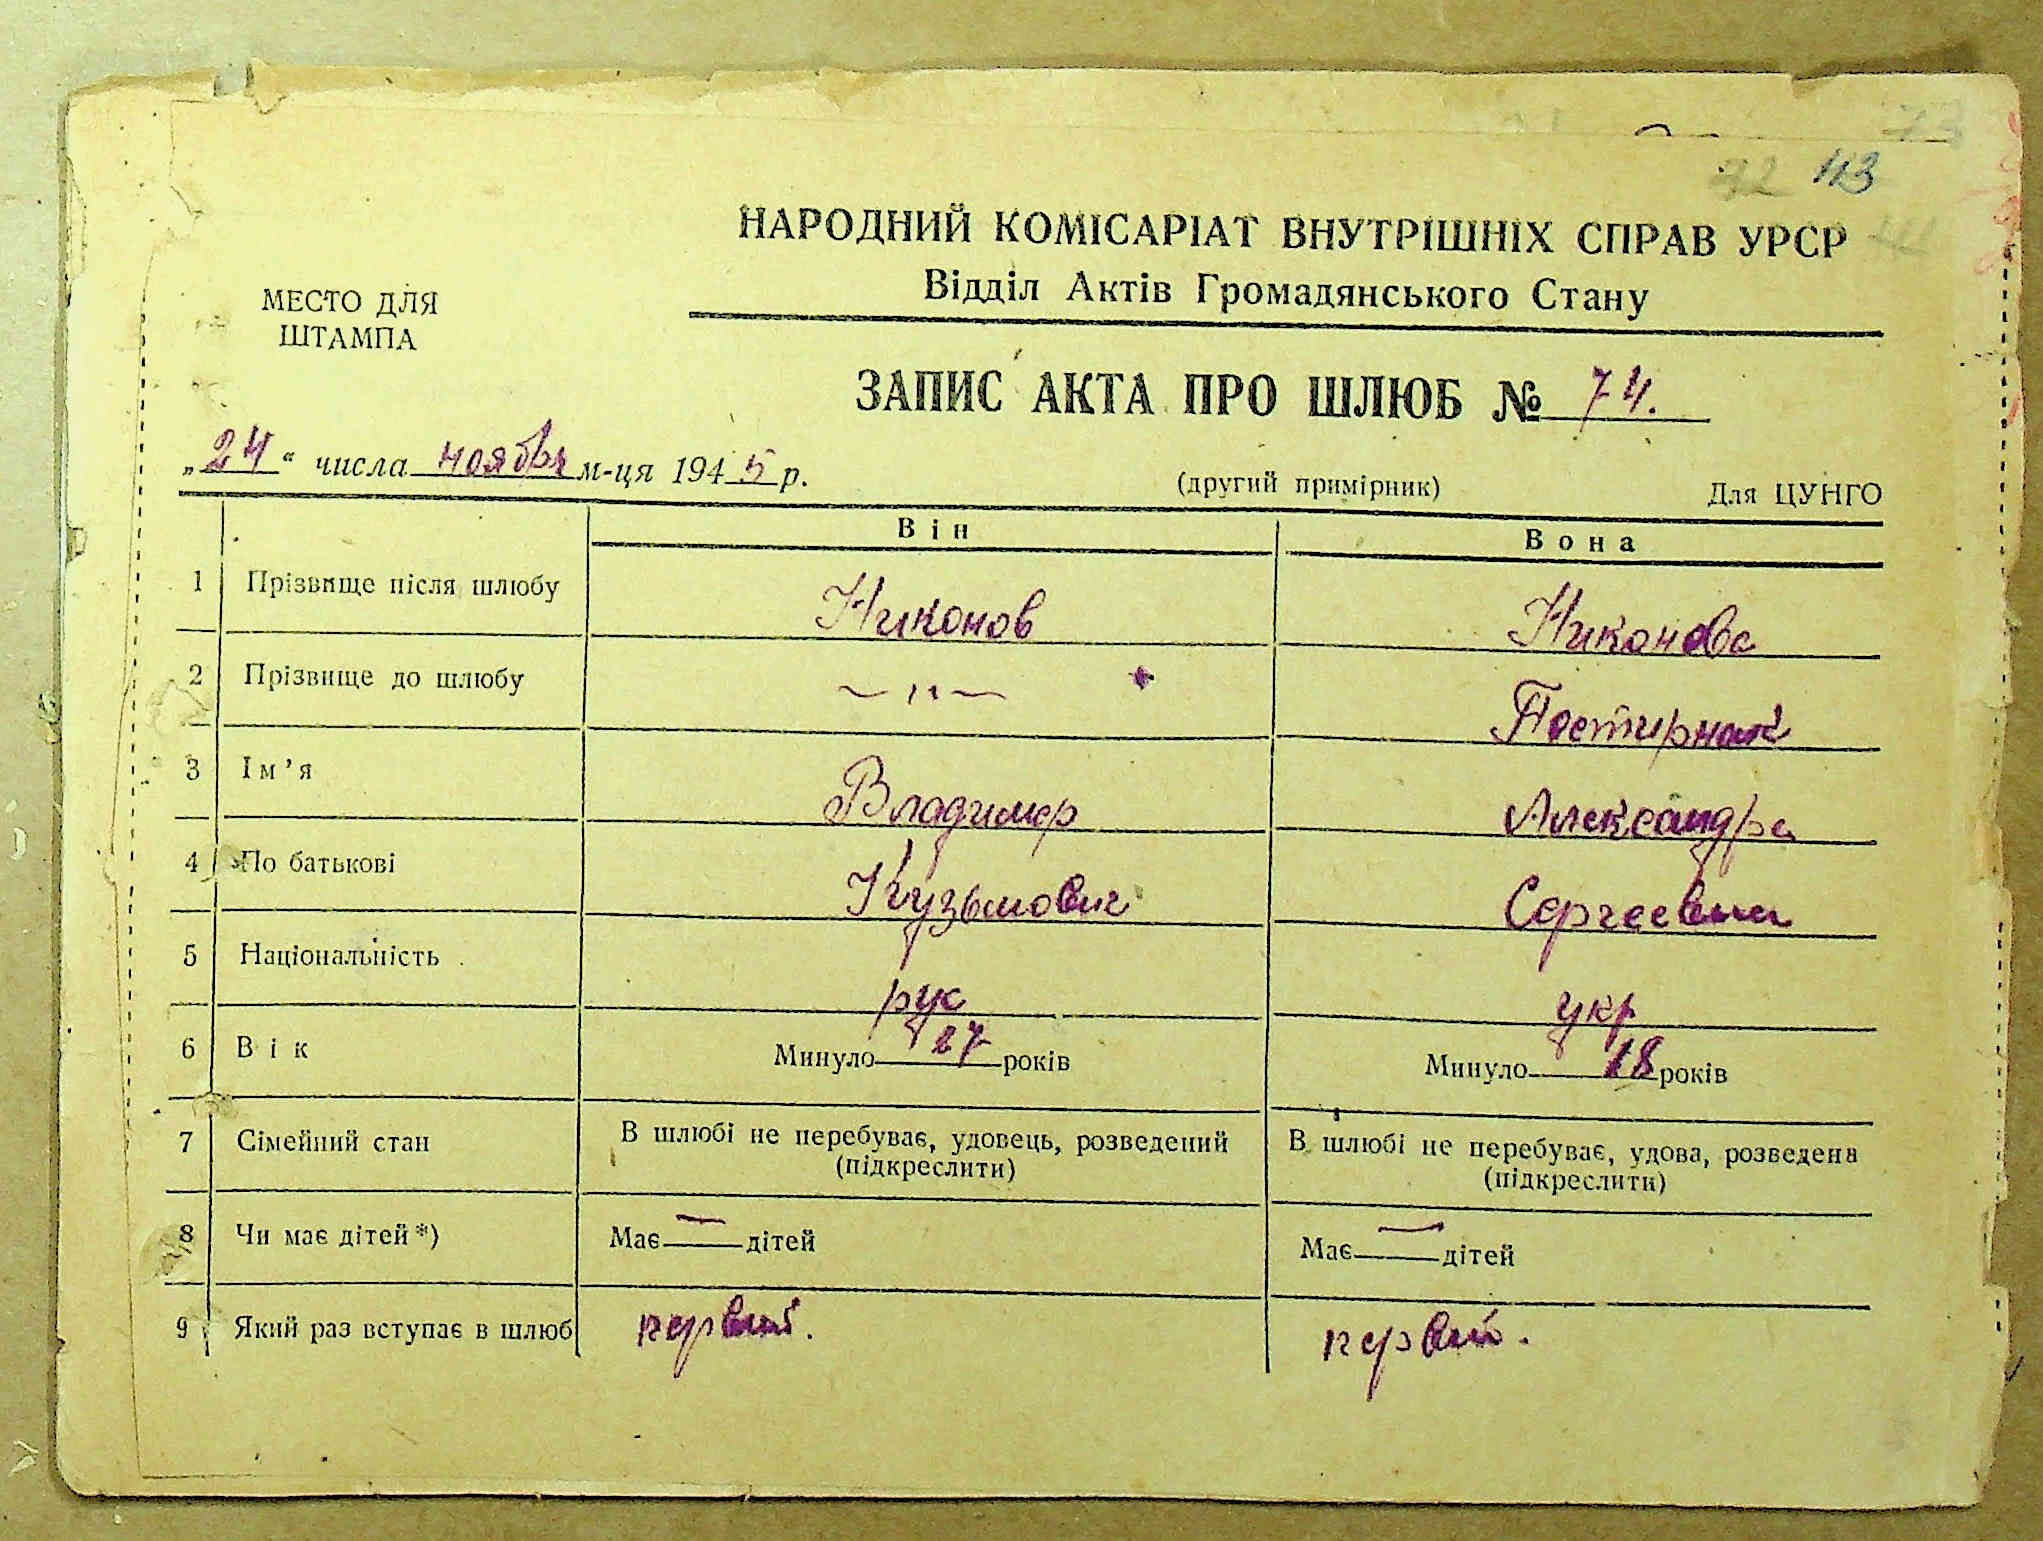 73
72 113
НАРОДНИЙ КОМІСАРІАТ ВНУТРІШНІХ СПРАВ УРСР
Відділ Актів Громадянського Стану
МЕСТО ДЛЯ
ШТАМПА
ЗАПИС АКТА ПРО ШЛЮБ № 74.
„24“ числа ноября м-ця 1945 р.
(другий примірник) Для ЦУНГО
Він Вона
1 Прізвище після шлюбу Никонов Никонова
2 Прізвище до шлюбу —"— Постирнак
3 Ім’я Владимер Александра
4 По батькові Кузьмович Сергеевна
5 Національність рус укр
6 Вік Минуло 27 років Минуло 18 років
7 Сімейний стан В шлюбі не перебуває, удовець, розведений В шлюбі не перебуває, удова, розведена
(підкреслити) (підкреслити)
8 Чи має дітей*) Має — дітей Має — дітей
9 Який раз вступає в шлюб первый. первый.